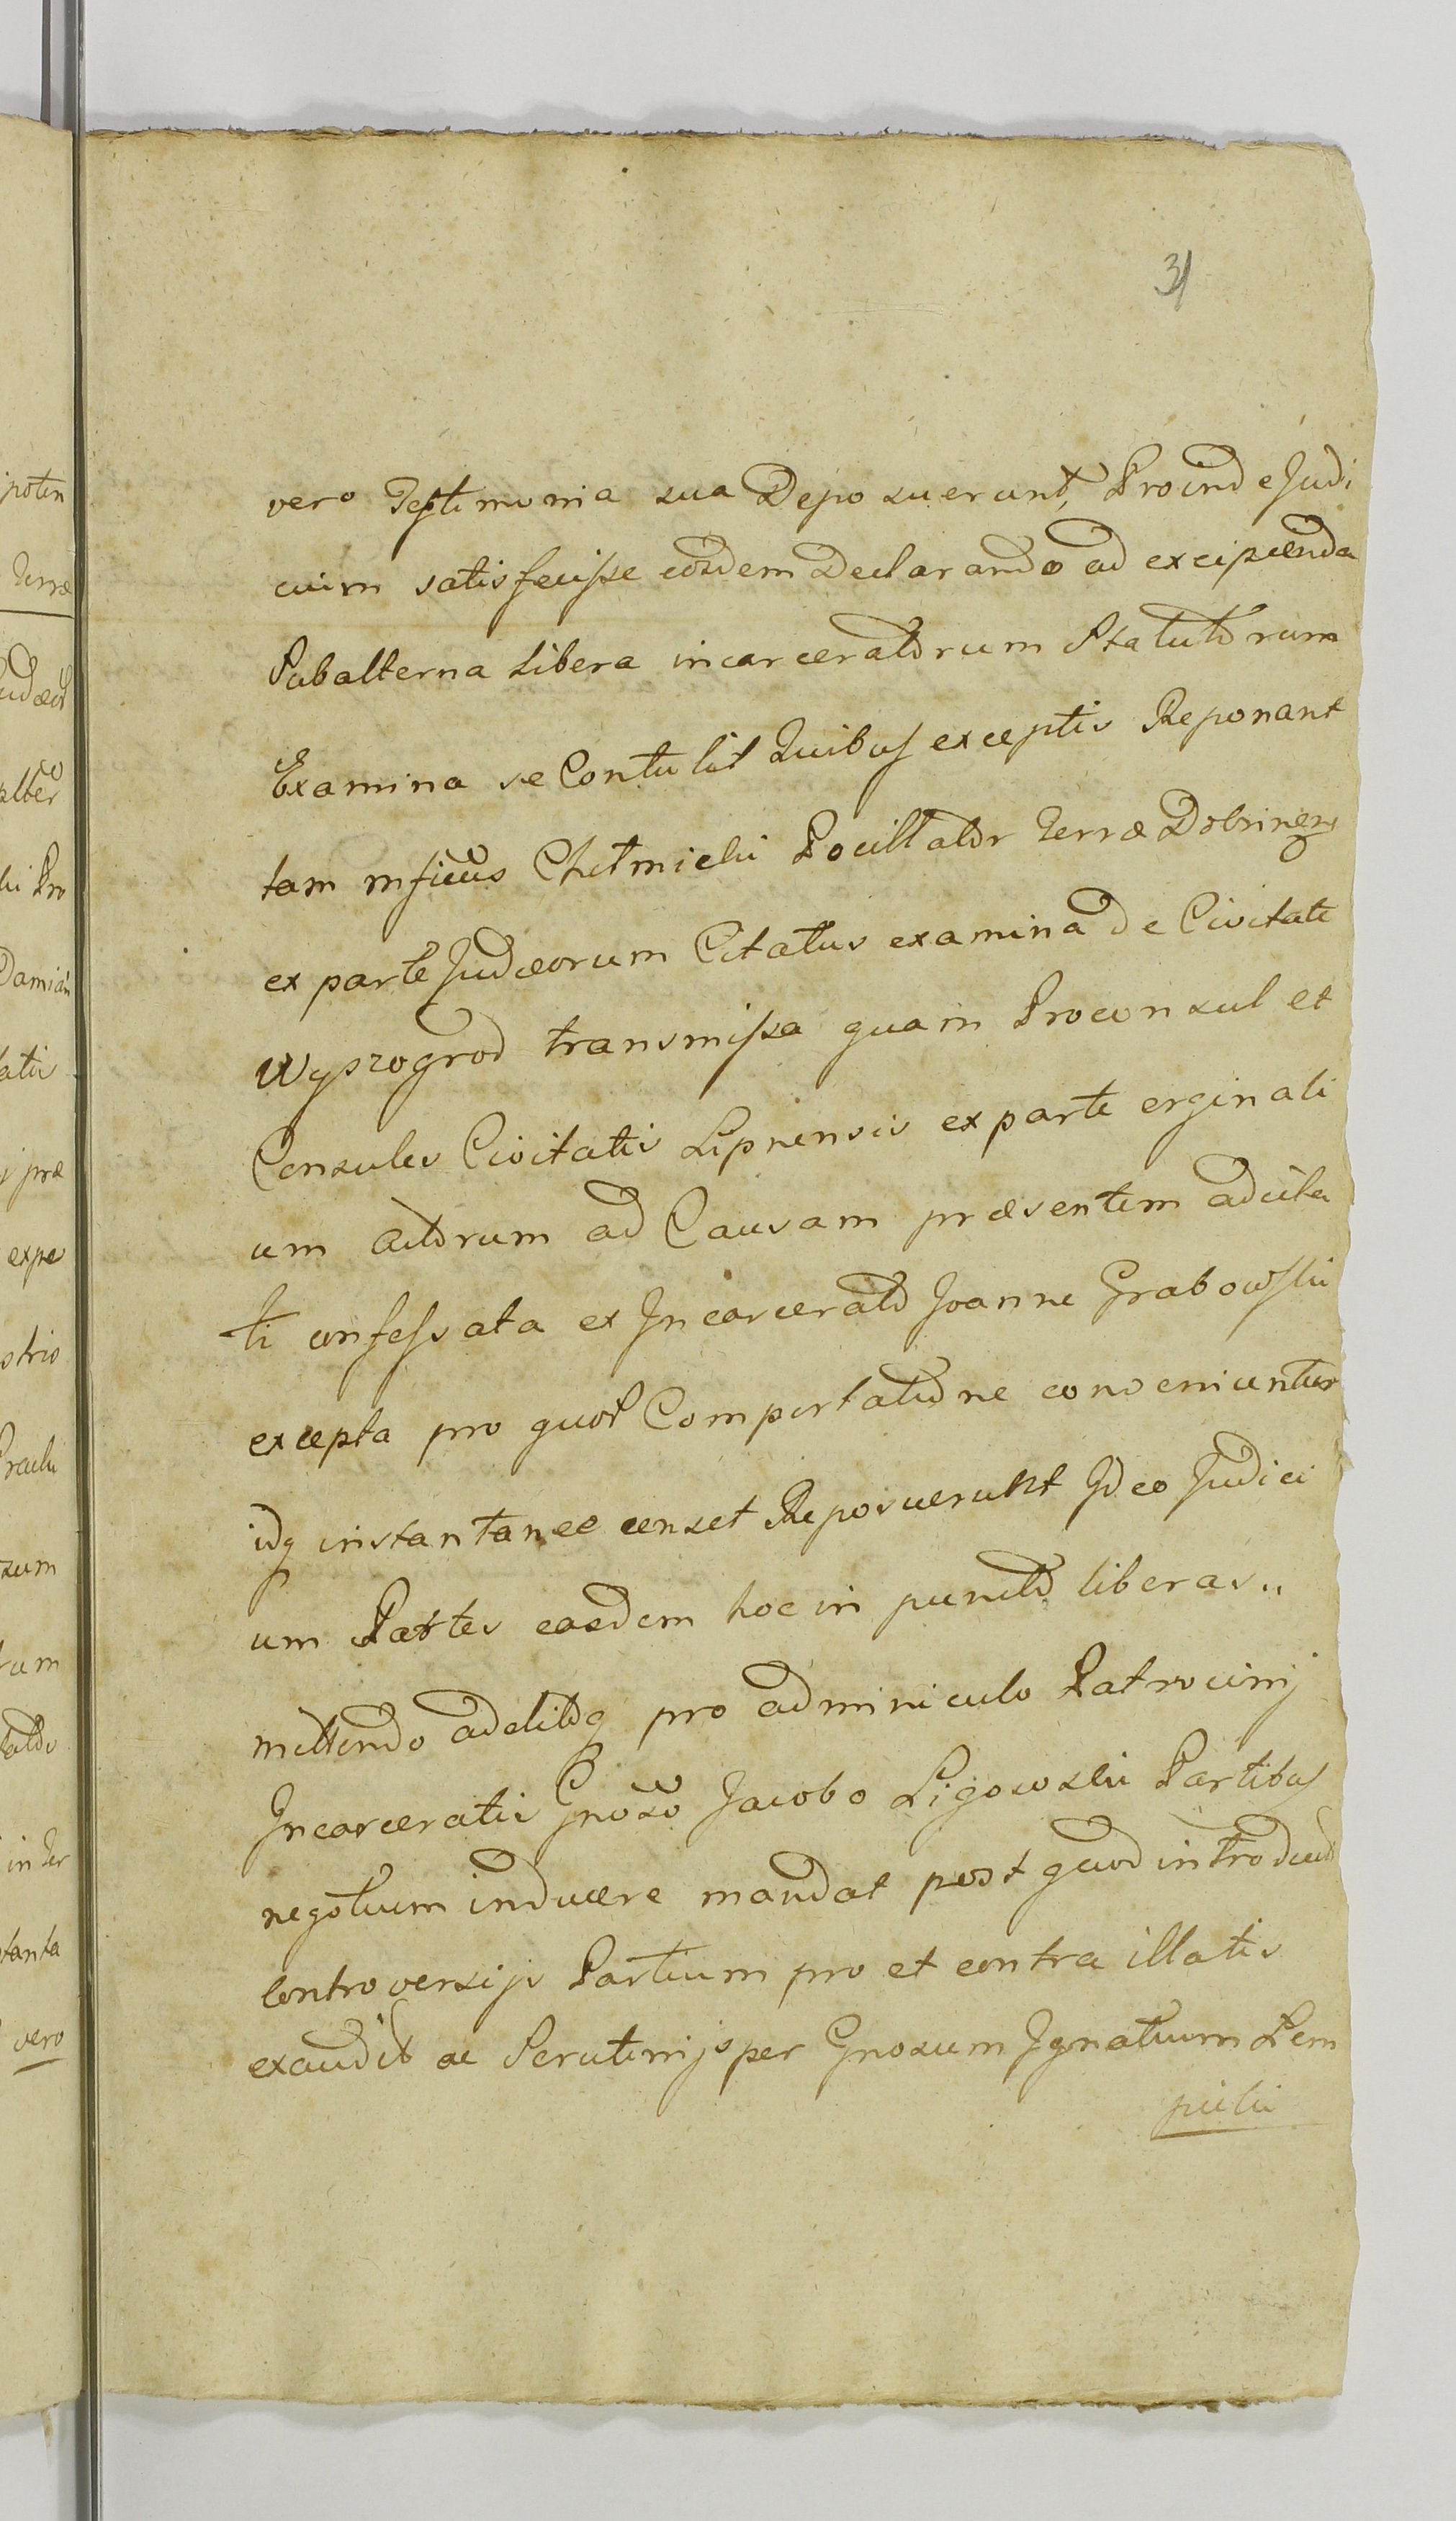 31
vero Testimonia sua Deposuerunt, Proinde Judi
cium satisfecisse eosdem Declarando ad excipienda
Subalterna Libera incarceratorum Statutorum
Examina se Contulit Quibus exceptis Reponant
tam mficus Chełmicki Pocillator Terræ Dobrinens
ex parte Judæorum Citatus examina de Civitate
Wyszogrod transmissa quam Proconsul et
Consules Civitatis Lipnensis ex parte erginali
um actorum ad Causam præsentem adcita
ti confessata ex Incarcerato Joanne Grabowski
excepta pro quor Comportatione conveniuntur
idq instantanee censet Reposuerunt Ideo Judici
um Partes easdem hoc in puncto liberas
mittendo additoq pro adminiculo Patrocinij
Incarceratis Gnoso Jacobo Ligowski Partibus
negotium inducere mandat post quod introducto
Controversijs Partium pro et contra illatis
exaudit ac Scrutinijs per Gnosum Ignatium Pem
picki
ipoten
Terræ
lki Pro
Damian
tatis
j præ
expe
strio
zum
tam
in Ter
tanta
vero